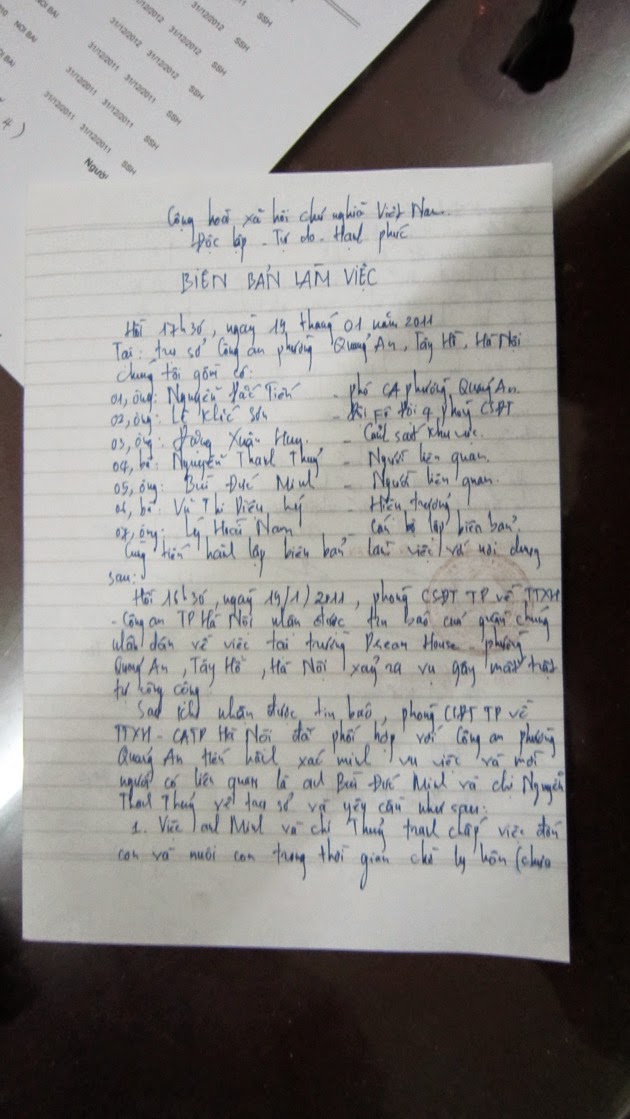 NOI BAI
31/12/2012 SSH
31/12/2012 SSH
31/12/2012 SSH
31/12/2011 SSH
31/12/2011 SSH
31/12/2011 SSH
31/12/2011 SSH
Người
4)
Cộng hoà xã hội chủ nghĩa Việt Nam
Độc lập - Tự do - Hạnh phúc
BIÊN BẢN LÀM VIỆC
Hồi 17h30, ngày 19 tháng 01 năm 2011
Tại: trụ sở Công an phường Quảng An, Tây Hồ, Hà Nội
Chúng tôi gồm có:
01, ông: Nguyễn Đắc Tiến - phó CA phường Quảng An
02, ông: Lê Khắc Sơn - Đội 4 phòng CSĐT
03, ông: Xuân Huy - Cảnh sát khu vực.
04, bà: Nguyễn Thanh Thuỷ - Người liên quan.
05, ông: Bùi Đức Minh - Người liên quan.
06, bà: Vũ Thị Diệu Lý - Hiệu trưởng
07, ông: Lý Hoài Nam - Cán bộ lập biên bản.
Cùng tiến hành lập biên bản làm việc với nội dung
sau:
Hồi 16h30, ngày 19/1/2011, phòng CSĐT TP về TTXH
- Công an TP Hà Nội nhận được tin báo của quần chúng
nhân dân về việc tại trường Dream House, phường
Quảng An, Tây Hồ, Hà Nội xảy ra vụ gây mất trật
tự công cộng
Sau khi nhận được tin báo, phòng CSĐT TP về
TTXH - CATP Hà Nội đã phối hợp với Công an phường
Quảng An tiến hành xác minh vụ việc và mời
người có liên quan là anh Bùi Đức Minh và chị Nguyễn
Thanh Thuỷ về trụ sở và yêu cầu như sau:
1. Việc anh Minh và chị Thuỷ tranh chấp việc đón
con và nuôi con trong thời gian chờ ly hôn (chưa